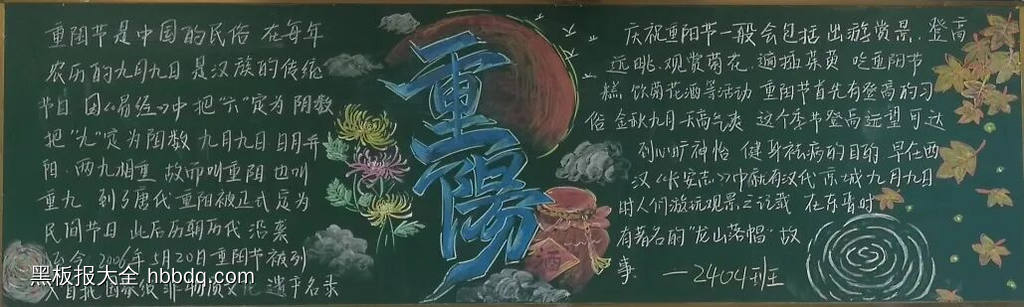 重阳节是中国的民俗 在每年
农历的九月九日 是汉族的传统
节日 因《易经》中把“六”定为阴数
把“九”定为阳数 九月九日 日月并
阳 两九相重 故而叫重阳 也叫
重九 到了唐代 重阳被正式定为
民间节日 此后历朝历代 沿袭
至今 2006年5月20日重阳节被列
入首批国家级非物质文化遗产名录
重陽
酒
庆祝重阳节一般会包括出游赏景、登高
远眺、观赏菊花、遍插茱萸、吃重阳节
糕、饮菊花酒等活动 重阳节首先有登高的习
俗 金秋九月 天高气爽 这个季节登高远望可达
到心旷神怡 健身祛病的目的 早在西
汉《长安志》中就有汉代京城九月九日
时人们游玩观景之记载 在东晋时
有著名的“龙山落帽”故
事 —2404班
黑板报大全 hbbdq.com